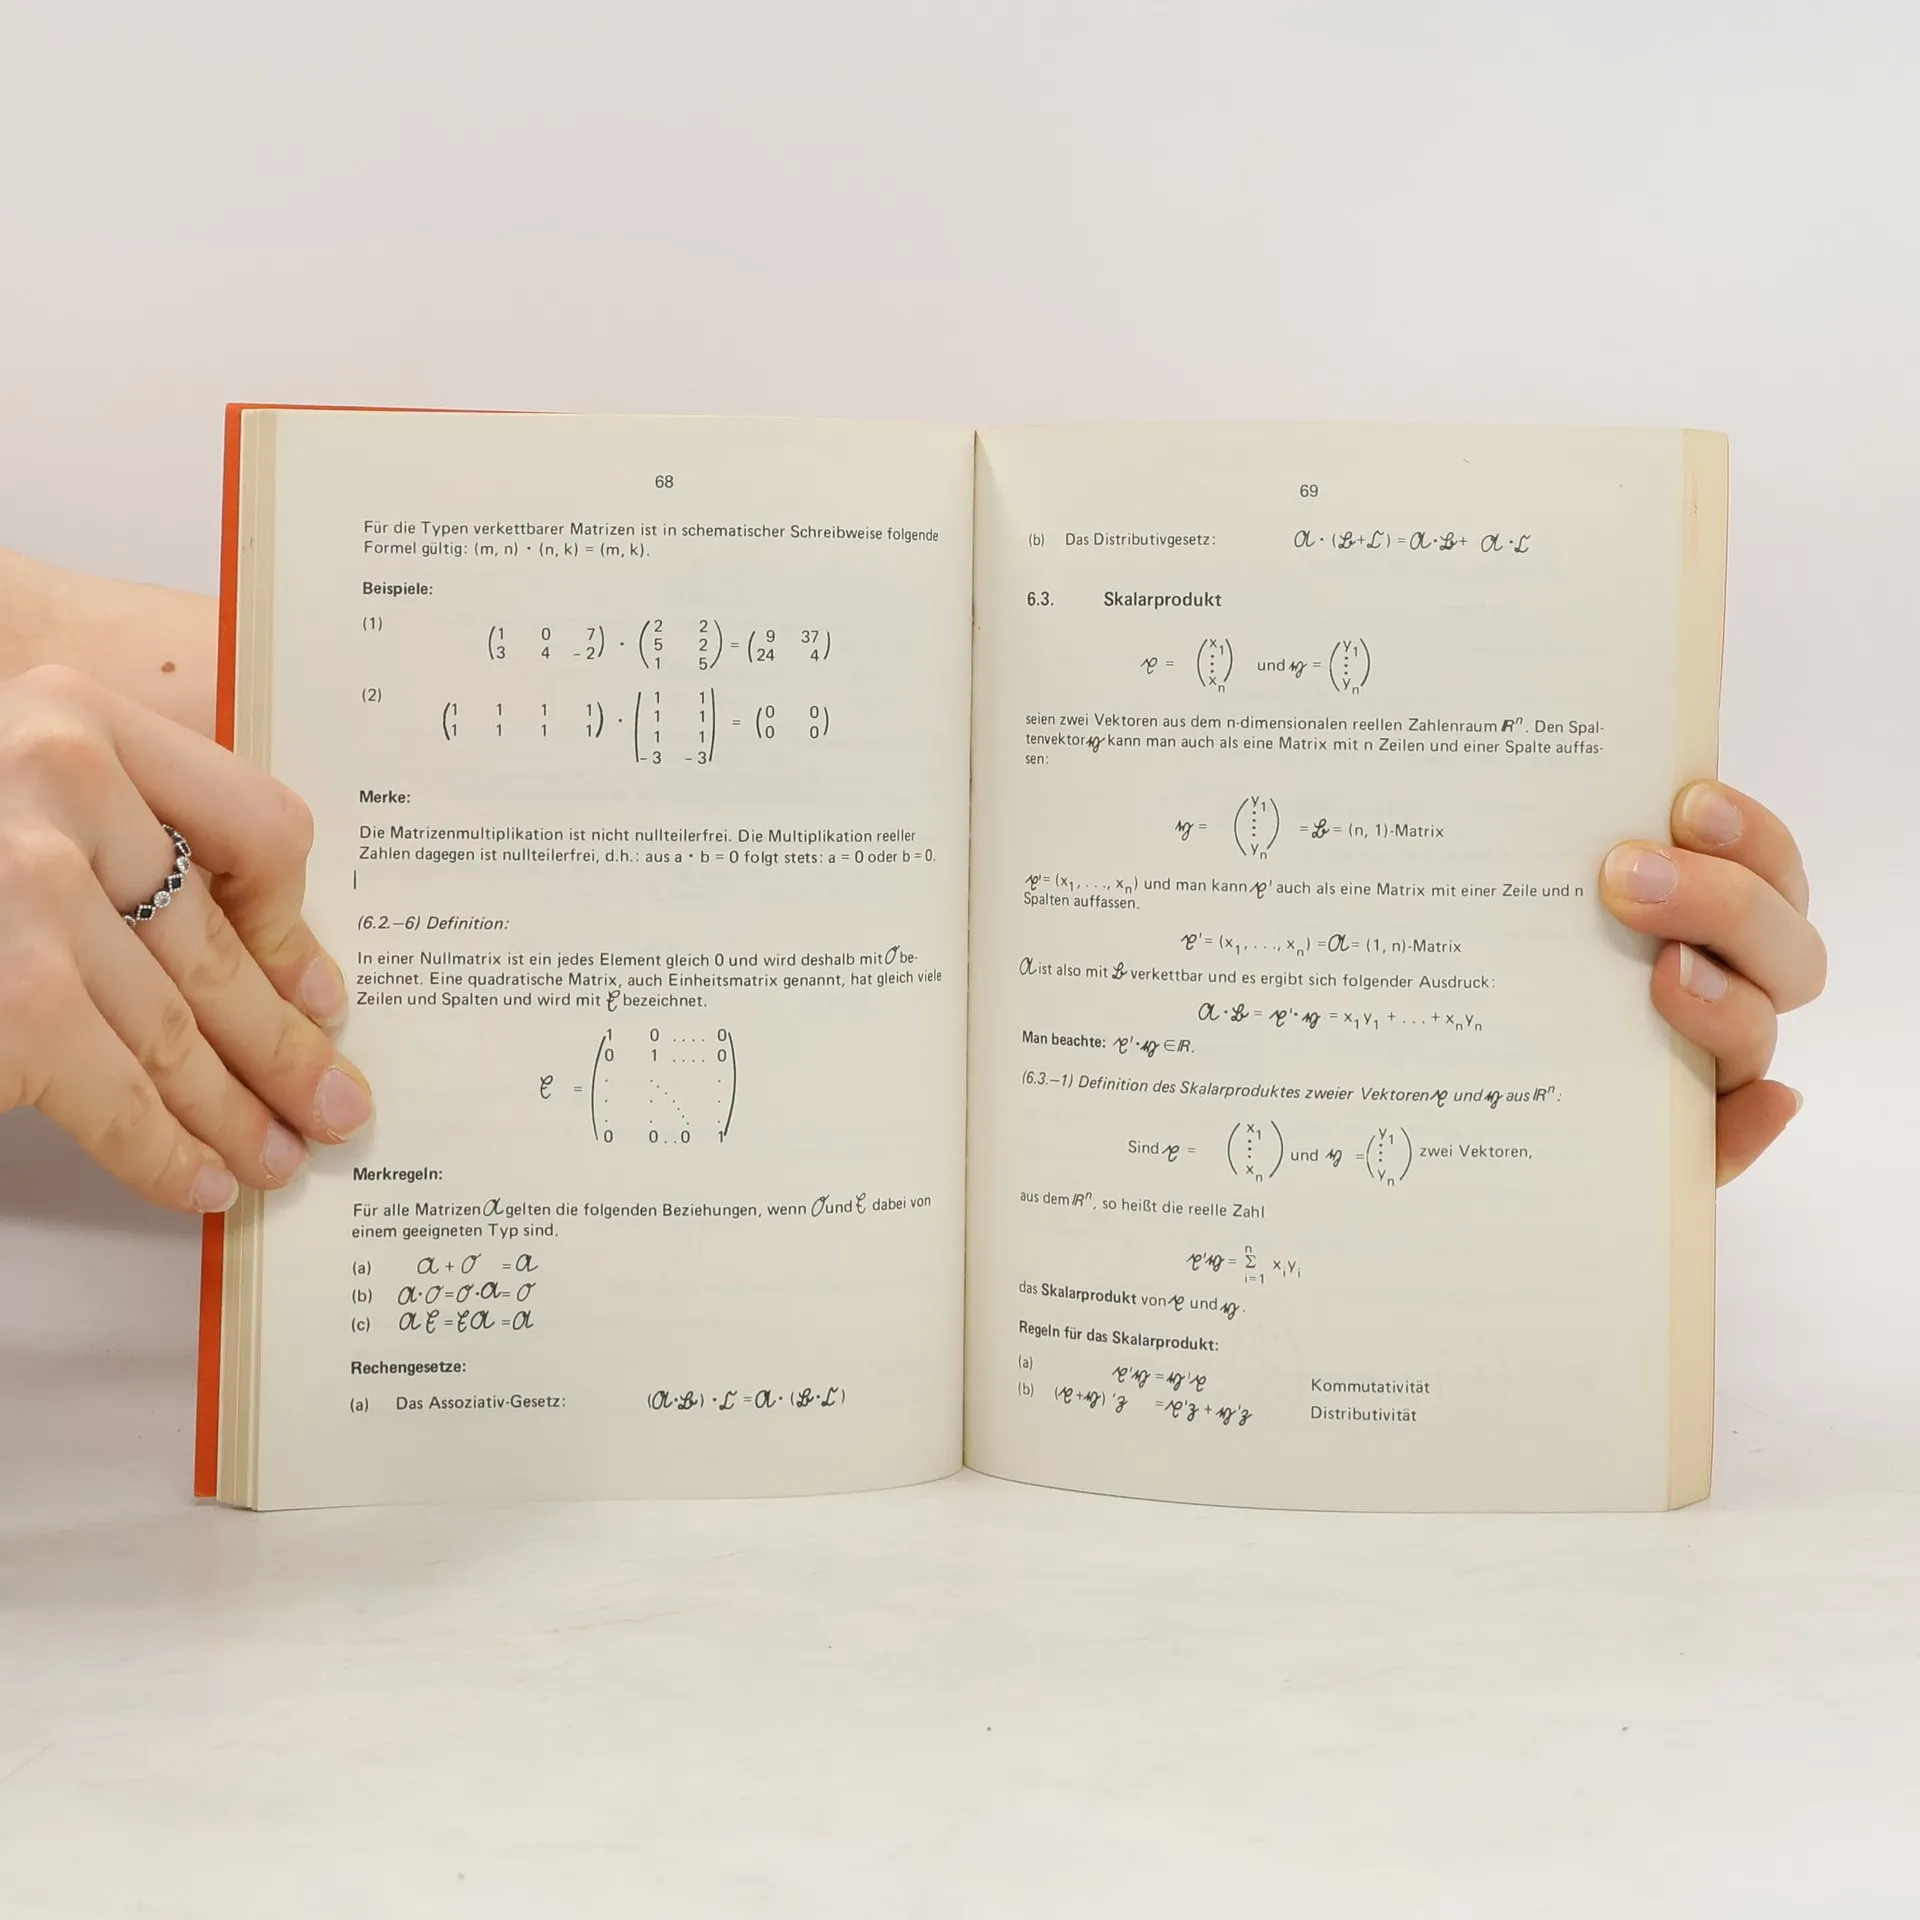 68
Für die Typen verkettbarer Matrizen ist in schematischer Schreibweise folgende
Formel gültig: (m, n) · (n, k) = (m, k).
Beispiele:
(1)
(1 0 7) · (2 2) = (9 37)
(3 4 -2) (5 2) (24 4)
(1 5)
(2)
(1 1 1 1) · (1 1) = (0 0)
(1 1 1 1) (1 1) (0 0)
(1 1)
(-3 -3)
Merke:
Die Matrizenmultiplikation ist nicht nullteilerfrei. Die Multiplikation reeller
Zahlen dagegen ist nullteilerfrei, d.h.: aus a · b = 0 folgt stets: a = 0 oder b = 0.
(6.2.–6) Definition:
In einer Nullmatrix ist ein jedes Element gleich 0 und wird deshalb mit 𝒪 be-
zeichnet. Eine quadratische Matrix, auch Einheitsmatrix genannt, hat gleich viele
Zeilen und Spalten und wird mit ℰ bezeichnet.
1 0 .... 0
0 1 .... 0
ℰ =
0 0..0 1
Merkregeln:
Für alle Matrizen 𝒜 gelten die folgenden Beziehungen, wenn 𝒪 und ℰ dabei von
einem geeigneten Typ sind.
(a) 𝒜 + 𝒪 = 𝒜
(b) 𝒜·𝒪 = 𝒪·𝒜 = 𝒪
(c) 𝒜ℰ = ℰ𝒜 = 𝒜
Rechengesetze:
(a) Das Assoziativ-Gesetz: (𝒜·ℬ)·ℒ = 𝒜·(ℬ·ℒ)
69
(b) Das Distributivgesetz: 𝒜·(ℬ+ℒ) = 𝒜·ℬ + 𝒜·ℒ
6.3. Skalarprodukt
𝓍 = (x₁ ⋮ xₙ) und 𝓎 = (y₁ ⋮ yₙ)
seien zwei Vektoren aus dem n-dimensionalen reellen Zahlenraum ℝⁿ. Den Spal-
tenvektor 𝓎 kann man auch als eine Matrix mit n Zeilen und einer Spalte auffas-
sen:
𝓎 = (y₁ ⋮ yₙ) = ℬ = (n, 1)-Matrix
𝓍' = (x₁, . . ., xₙ) und man kann 𝓍' auch als eine Matrix mit einer Zeile und n
Spalten auffassen.
𝓍' = (x₁, . . ., xₙ) = 𝒜 = (1, n)-Matrix
𝒜 ist also mit ℬ verkettbar und es ergibt sich folgender Ausdruck:
𝒜·ℬ = 𝓍'·𝓎 = x₁y₁ + . . . + xₙyₙ
Man beachte: 𝓍'·𝓎 ∈ ℝ.
(6.3.–1) Definition des Skalarproduktes zweier Vektoren 𝓍 und 𝓎 aus ℝⁿ:
Sind 𝓍 = (x₁ ⋮ xₙ) und 𝓎 = (y₁ ⋮ yₙ) zwei Vektoren,
aus dem ℝⁿ, so heißt die reelle Zahl
𝓍'𝓎 = Σⁿᵢ₌₁ xᵢyᵢ
das Skalarprodukt von 𝓍 und 𝓎.
Regeln für das Skalarprodukt:
(a) 𝓍'𝓎 = 𝓎'𝓍 Kommutativität
(b) (𝓍+𝓎)'𝓏 = 𝓍'𝓏 + 𝓎'𝓏 Distributivität